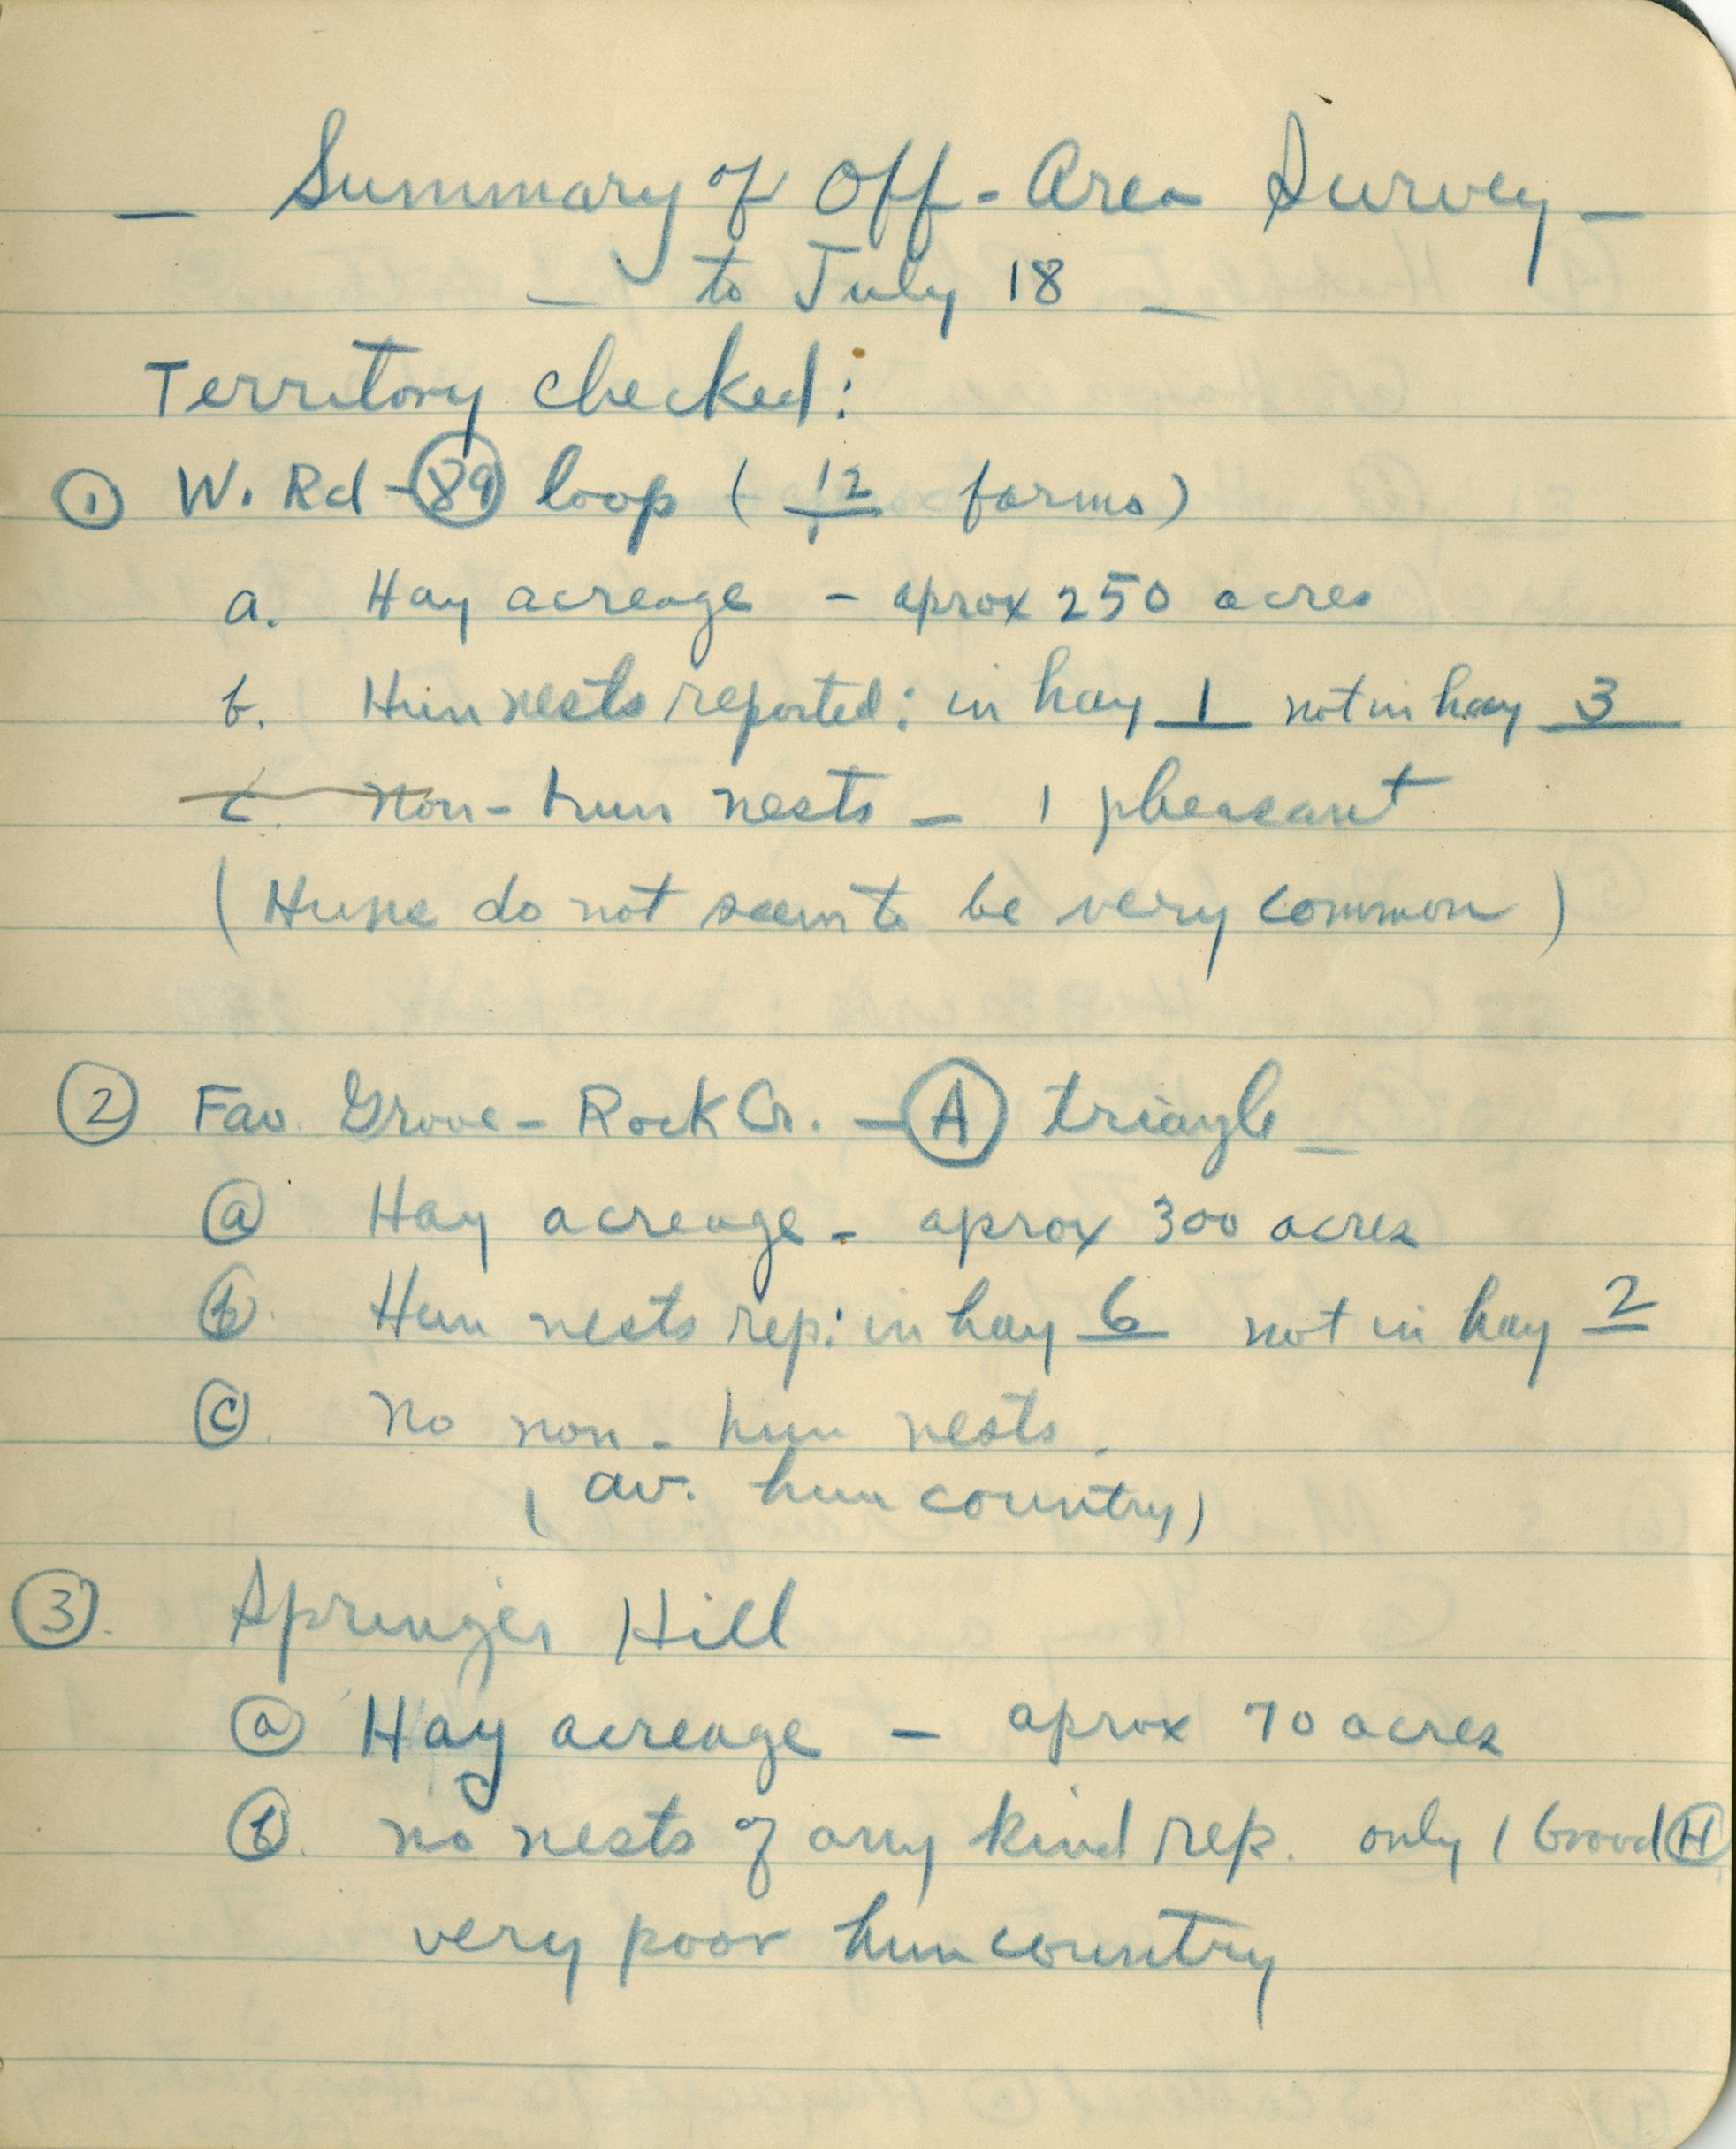 — Summary of Off-Area Survey —
— to July 18 —
Territory checked:
① W. Rd - 89 loop ( 12 farms)
a. Hay acreage - aprox 250 acres
b. Hun nests reported: in hay 1 not in hay 3
c. Non-hun nests - 1 pheasant
(Huns do not seem to be very common)
② Fav. Grove - Rock Cr. - A triangle -
ⓐ Hay acreage - aprox 300 acres
ⓑ. Hun nests rep: in hay 6 not in hay 2
ⓒ. No non-hun nests.
(av. hun country)
③. Springer Hill
ⓐ Hay acreage - aprox 70 acres
ⓑ. no nests of any kind rep. only 1 brood Ⓗ
very poor hun country